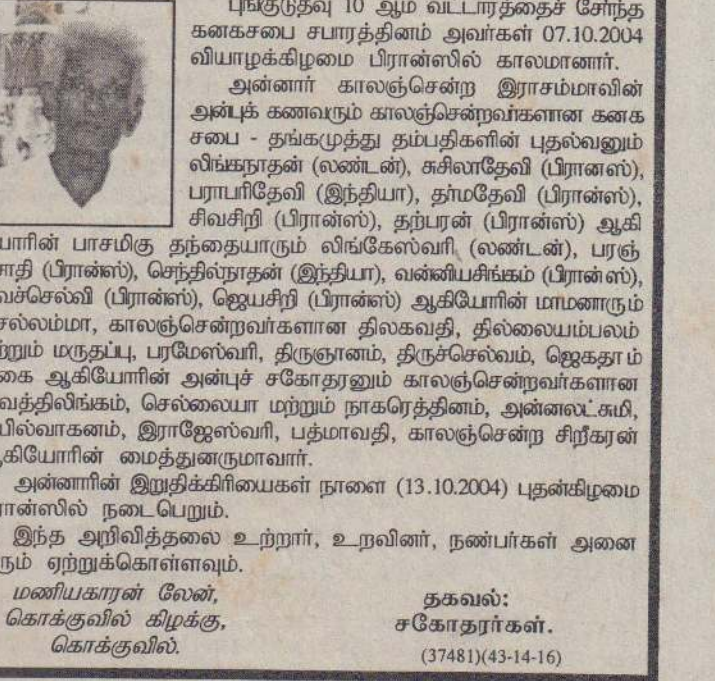 புங்குடுதீவு 10 ஆம் வட்டாரத்தைச் சேர்ந்த
கனகசபை சபாரத்தினம் அவர்கள் 07.10.2004
வியாழக்கிழமை பிரான்ஸில் காலமானார்.
அன்னார் காலஞ்சென்ற இராசம்மாவின்
அன்புக் கணவரும் காலஞ்சென்றவர்களான கனக
சபை - தங்கமுத்து தம்பதிகளின் புதல்வனும்
லிங்கநாதன் (லண்டன்), சுசிலாதேவி (பிரானஸ்),
பராபரிதேவி (இந்தியா), தர்மதேவி (பிரான்ஸ்),
சிவசிறி (பிரான்ஸ்), தற்பரன் (பிரான்ஸ்) ஆகி
யோரின் பாசமிகு தந்தையாரும் லிங்கேஸ்வரி (லண்டன்), பரஞ்
சாதி (பிரான்ஸ்), செந்தில்நாதன் (இந்தியா), வன்னியசிங்கம் (பிரான்ஸ்),
வச்செல்வி (பிரான்ஸ்), ஜெயசிறி (பிரான்ஸ்) ஆகியோரின் மாமனாரும்
சல்லம்மா, காலஞ்சென்றவர்களான திலகவதி, தில்லையம்பலம்
ற்றும் மருதப்பு, பரமேஸ்வரி, திருஞானம், திருச்செல்வம், ஜெகதாம்
கை ஆகியோரின் அன்புச் சகோதரனும் காலஞ்சென்றவர்களான
வத்திலிங்கம், செல்லையா மற்றும் நாகரெத்தினம், அன்னலட்சுமி,
யில்வாகனம், இராஜேஸ்வரி, பத்மாவதி, காலஞ்சென்ற சிறீகரன்
கியோரின் மைத்துனருமாவார்.
அன்னாரின் இறுதிக்கிரியைகள் நாளை (13.10.2004) புதன்கிழமை
ரான்ஸில் நடைபெறும்.
இந்த அறிவித்தலை உற்றார், உறவினர், நண்பர்கள் அனை
ரும் ஏற்றுக்கொள்ளவும்.
மணியகாரன் லேன்,
கொக்குவில் கிழக்கு,
கொக்குவில்.
தகவல்:
சகோதரர்கள்.
(37481)(43-14-16)